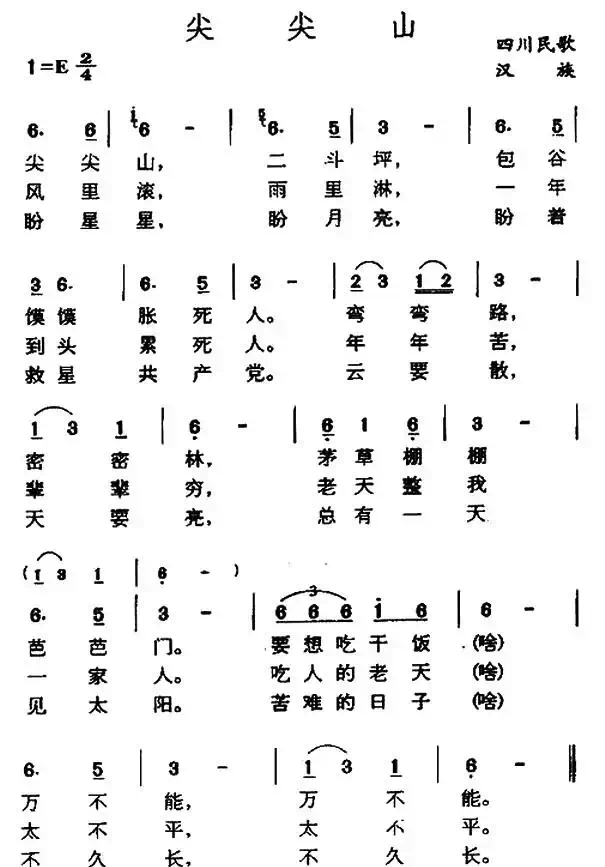 尖尖山
四川民歌
1=E 2/4
汉族
6. 6 | i6 - | 56. 5 | 3 - | 6. 5 |
尖尖山， 二斗坪， 包谷
风里滚， 雨里淋， 一年
盼星星， 盼月亮， 盼着
3 6. | 6. 5 | 3 - | 2 3 1 2 | 3 - |
馍馍 胀死人。 弯弯路，
到头 累死人。 年年苦，
救星 共产党。 云要散，
1 3 1 | 6 - | 6 1 6 | 3 - |
密密林， 茅草棚棚
辈辈穷， 老天整我
天要亮， 总有一天
( 1 3 1 | 6 - )
6. 5 | 3 - | 3 6 6 6 i 6 | 6 - |
芭芭门。 要想吃干饭 (啥)
一家人。 吃人的老天 (啥)
见太阳。 苦难的日子 (啥)
6. 5 | 3 - | 1 3 1 | 6 - ‖
万不能， 万不能。
太不平， 太不平。
不久长， 不久长。